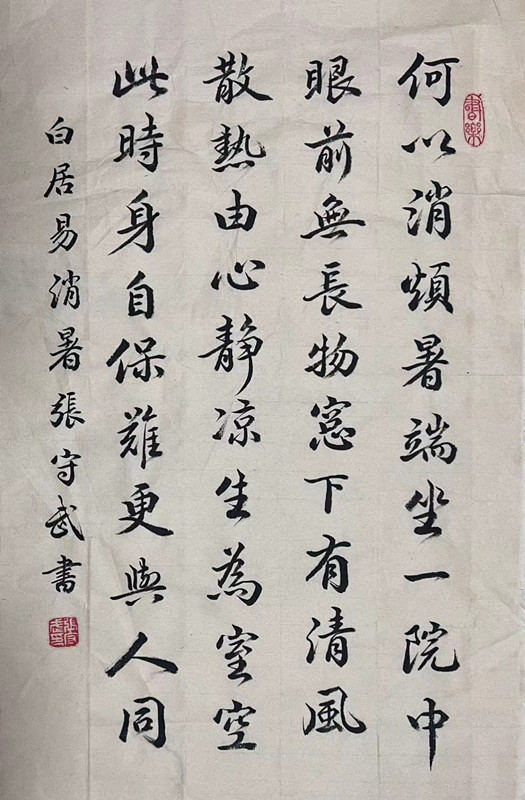 書樂
何以消煩暑端坐一院中
眼前無長物窓下有清風
散熱由心靜凉生為室空
此時身自保難更與人同
白居易消暑張守武書
張守武印